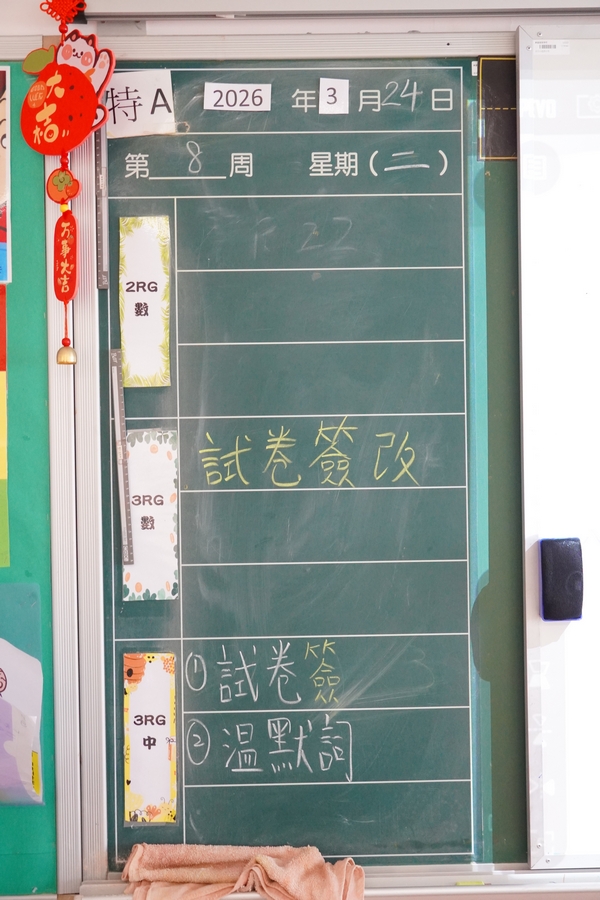 大吉
万事大吉
特A
2026 年 3 月 24 日
第 8 周 星期 (二)
2RG
數
3RG
數
試卷簽改
3RG
中
① 試卷簽
② 溫默詞